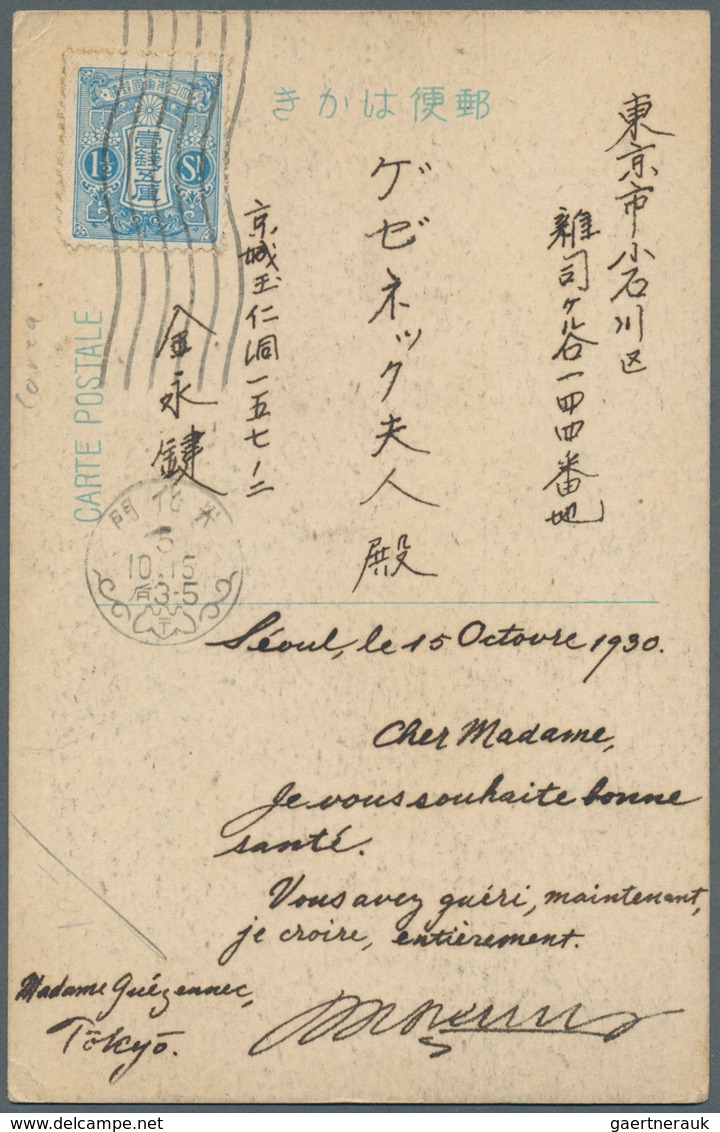 きかは便郵
東京市小石川区
雑司ヶ谷一四四番地
ゲゼネック夫人殿
京城玉仁洞一五七ノ二
金永鍵
大日本帝國郵便
壹銭五厘
1½ Sn
CARTE POSTALE
Corea
光化門
5
10.15
后3-5
Séoul, le 15 Octovre 1930.
Cher Madame,
Je vous souhaite bonne
santé.
Vous avez guéri, maintenant,
je croire, entièrement.
Madame Guézennec,
Tōkyō.
gaertnerauk